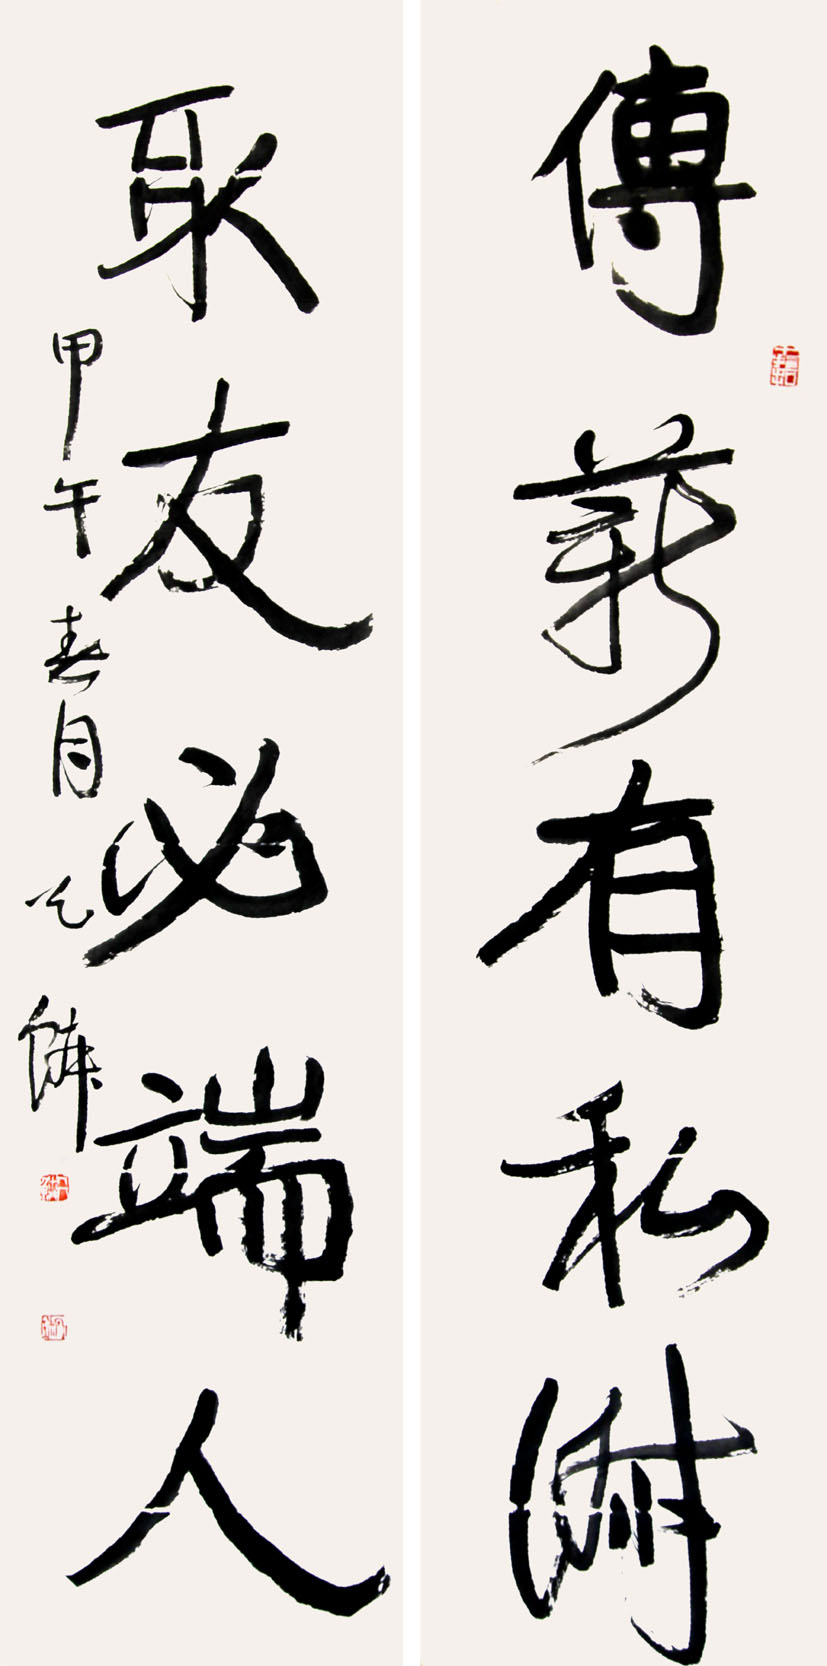 傳薪有私淑
取友必端人
甲午春月